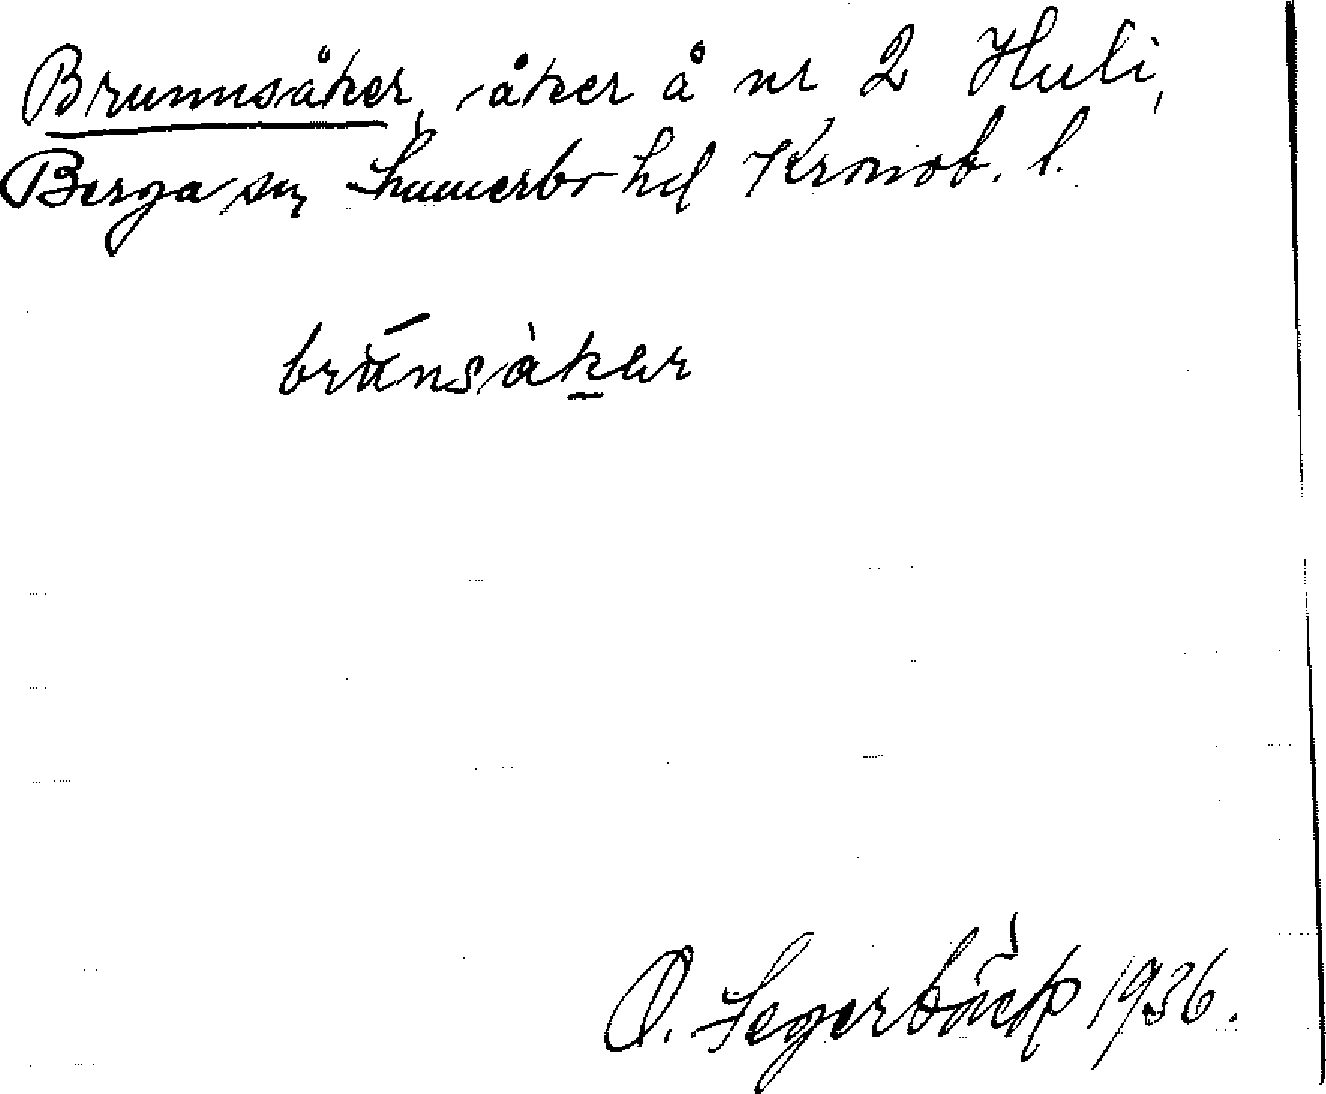 Brunnsåker, åker å nr 2 Huli,
Berga sn Sunnerbo hd Kronob. l.
brunsåker
O. Segerbäck 1936.